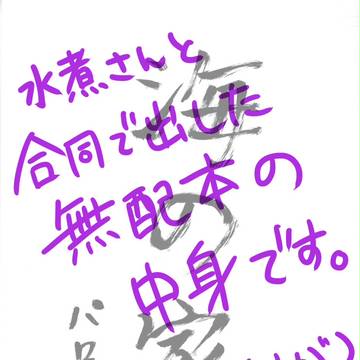 水煮さんと
合同で出した
無配本の
中身です。
海の家
パロ